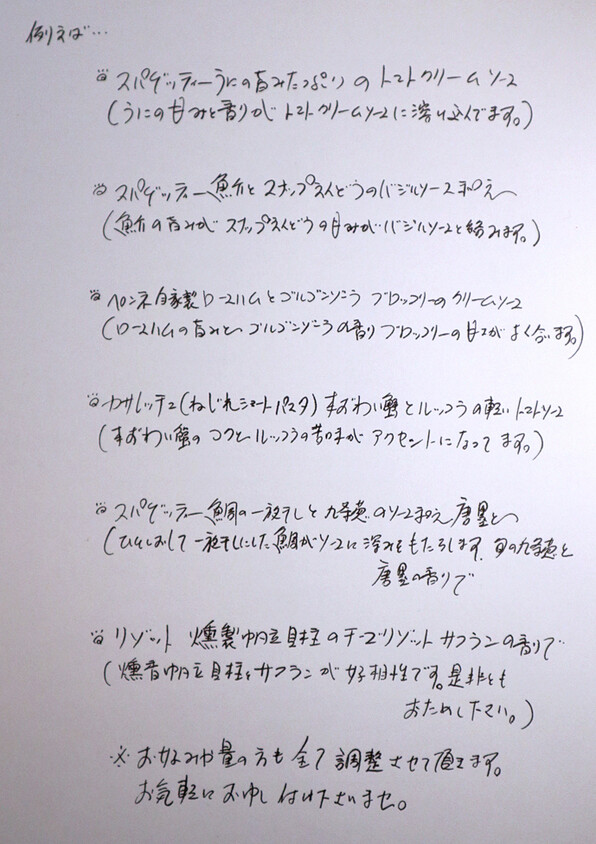 例えば…
スパゲッティーうにの旨みたっぷりのトマトクリームソース
(うにの甘みと香りがトマトクリームソースに溶け込んでます。)
スパゲッティー 魚介とスナップえんどうのバジルソース和え
(魚介の旨みがスナップえんどうの甘みがバジルソースと絡みます。)
ペンネ 自家製ロースハムとゴルゴンゾーラ ブロッコリーのクリームソース
(ロースハムの旨みとゴルゴンゾーラの香りブロッコリーの甘さがよく合います。)
カサレッチェ(ねじれショートパスタ) 本ずわい蟹とルッコラの軽いトマトソース
(本ずわい蟹のコクとルッコラの苦味がアクセントになってます。)
スパゲッティー 鯛の一夜干しと九条葱のソース和え 唐墨と
(ひと塩して一夜干しにした鯛がソースに深みをもたらします。旬の九条葱と
唐墨の香りで
リゾット 燻製帆立貝柱のチーズリゾット サフランの香りで
(燻香帆立貝柱とサフランが好相性です。是非とも
おためし下さい。)
※お好みや量の方も全て調整させて頂きます。
お気軽にお申し付け下さいませ。